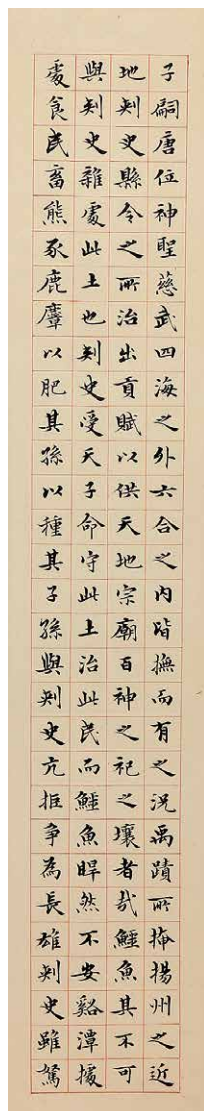 子嗣唐位神聖慈武四海之外六合之内皆撫而有之況禹蹟所掩揚州之近
地刺史縣令之所治出貢賦以供天地宗廟百神之祀之壤者哉鱷魚其不可
與刺史雜處此土也刺史受天子命守此土治此民而鱷魚睅然不安谿潭據
處食民畜熊豕鹿麞以肥其孫以種其子孫與刺史亢拒爭為長雄刺史雖駑